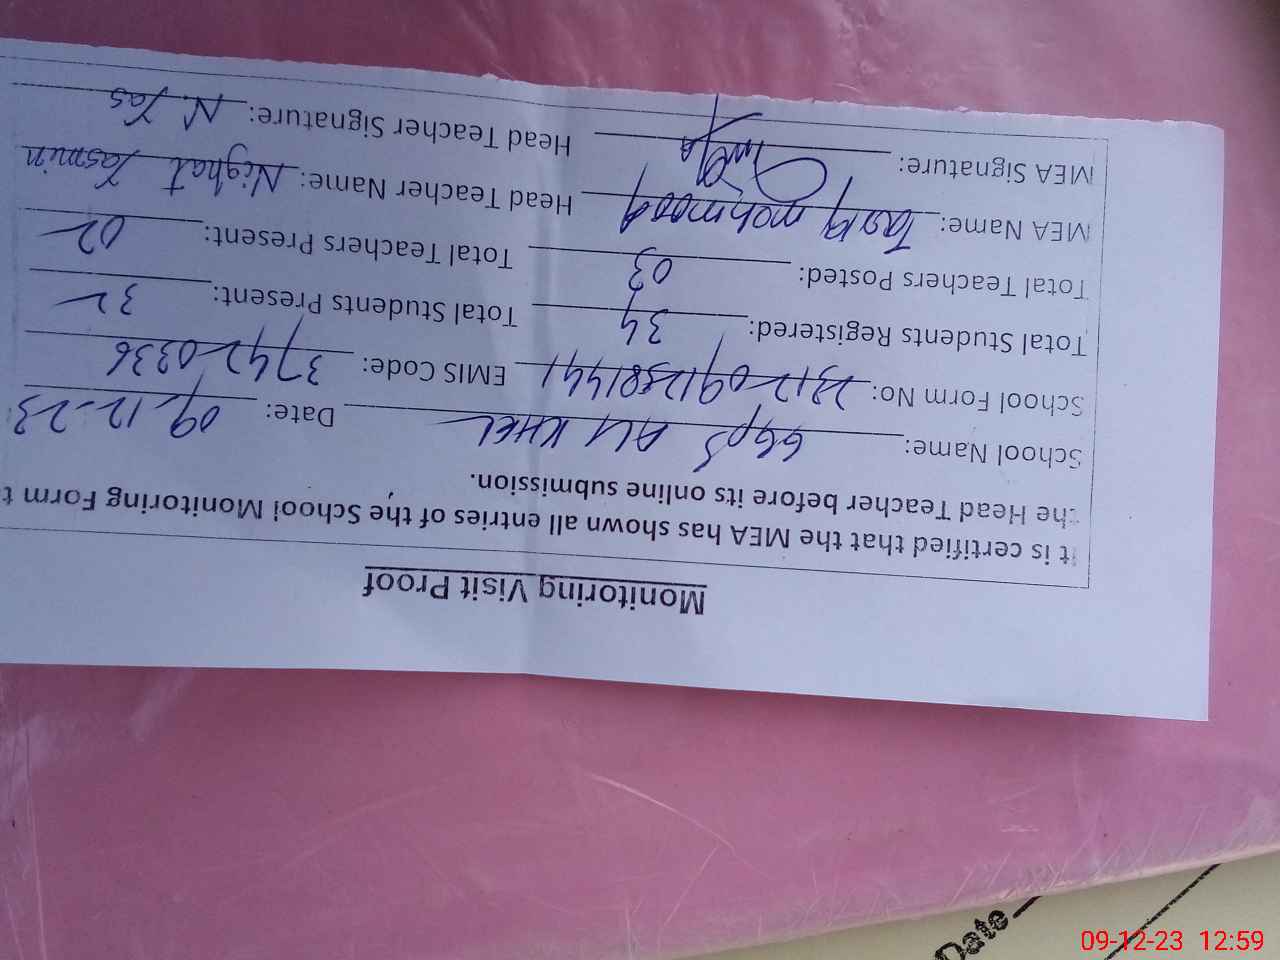 Monitoring Visit Proof
It is certified that the MEA has shown all entries of the School Monitoring Form t
the Head Teacher before its online submission.
School Name: GGPS ALI KHEL Date: 09-12-23
School Form No: 2312-0912581441 EMIS Code: 3742-0336
Total Students Registered: 34 Total Students Present: 32
Total Teachers Posted: 03 Total Teachers Present: 02
MEA Name: Tariq mehmood Head Teacher Name: Nighat Yasmin
MEA Signature: Head Teacher Signature: N. Yas
Date
09-12-23 12:59